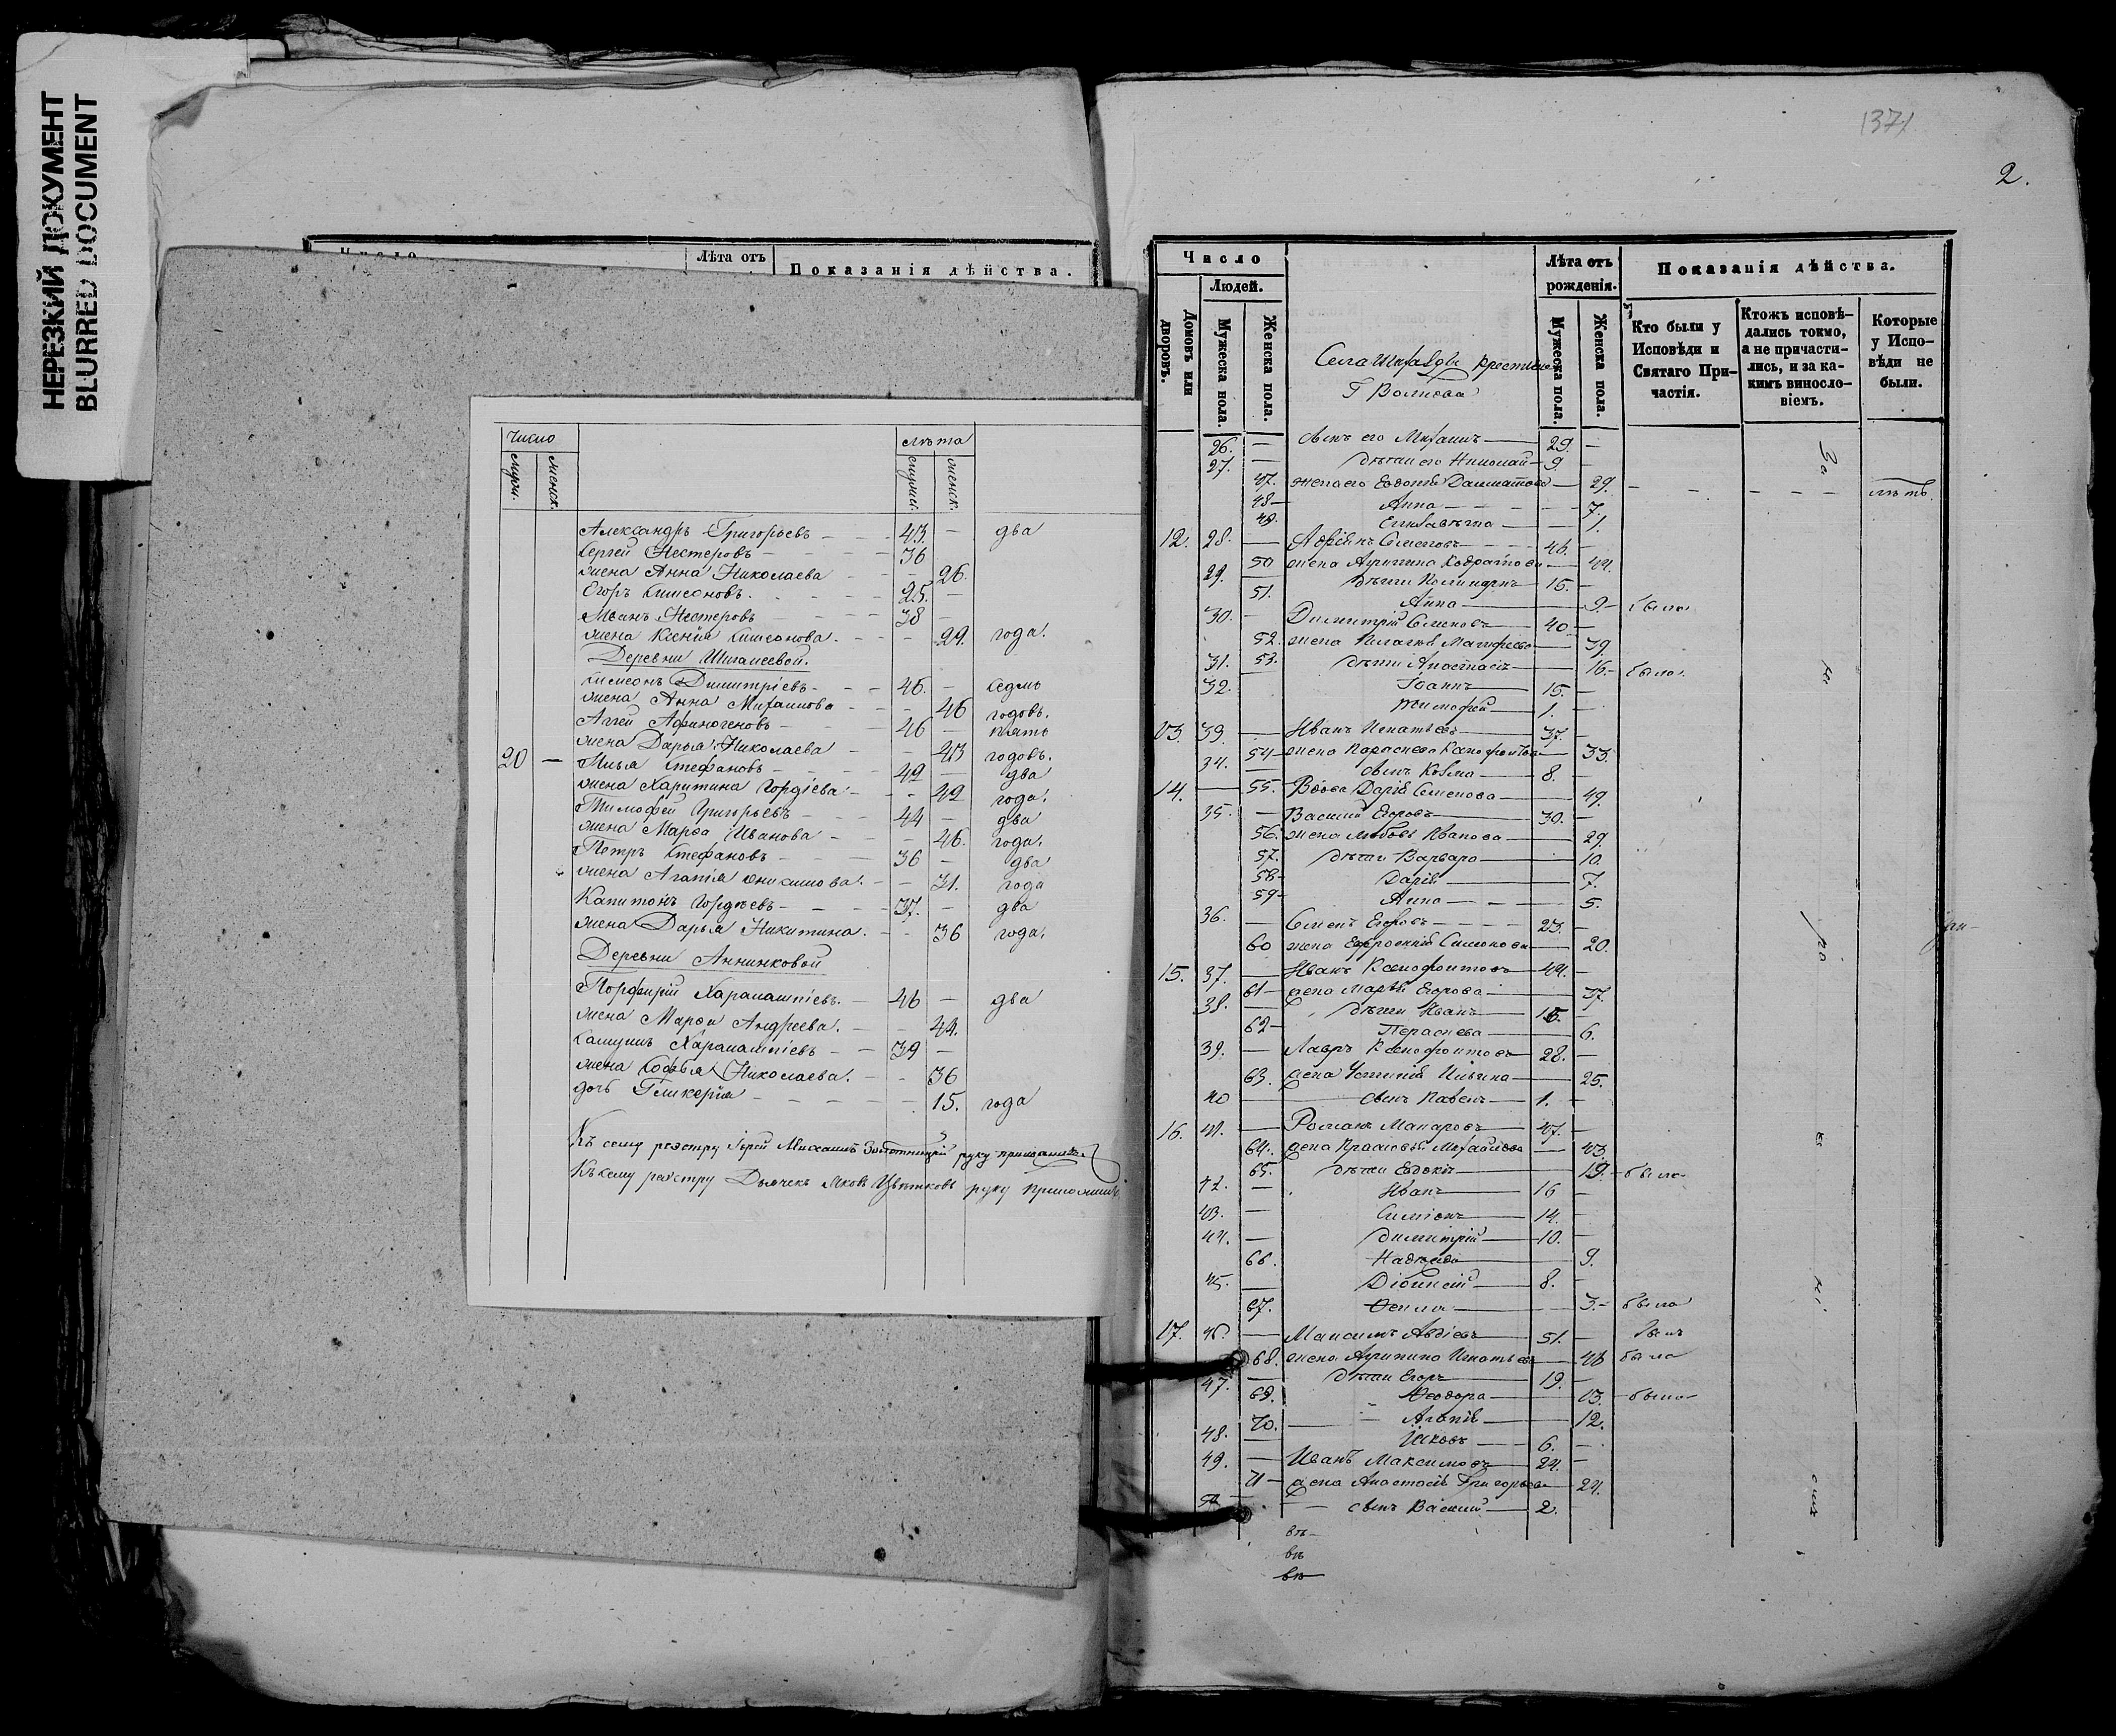 НЕРЕЗКИЙ ДОКУМЕНТ
BLURRED DOCUMENT
Лѣта отъ
Показанія дѣйства.
Число
лѣта
муж.
женск.
женск.
Александръ Григорьевъ 43 — два
Сергей Нестеровъ 36
жена Анна Николаева — 26.
Егоръ Симеоновъ. 25. —
Иванъ Нестеровъ 38 —
жена Ксенія Симеонова. — 29. года.
Деревни Шигалеевой.
Симеонъ Димитріевъ 46. — седмь
жена Анна Михаилова — 46 годовъ.
Аггей Афиногеновъ 46 — пять
жена Дарья Николаева — 43 годовъ.
20 — Илья Стефановъ 49 — два
жена Харитина Гордіева — 49 года.
Тимофей Григорьевъ 44 — два
жена Марѳа Иванова — 46. года.
Петръ Стефановъ 36 — два
жена Агапія Онисимова. — 31. года
Капитонъ Гордѣевъ 37. — два
жена Дарья Никитина. — 36 года.
Деревни Аннинковой
Порфирій Харалампіевъ. 46 — два
жена Марѳа Андреева. — 44.
Самуилъ Харалампіевъ 39 —
жена Софья Николаева. — 36
дочь Гликерія 15. года
Къ сему реэстру Іерей Михаилъ руку приложилъ
Къ сему реэстру Дьячекъ Яковъ Цвѣтковъ руку приложилъ
1371
2.
Число
Людей.
Домовъ или дворовъ.
Мужеска пола.
Женска пола.
Лѣта отъ рожденія.
Мужеска пола.
Женска пола.
Показанія дѣйства.
Кто были у Исповѣди и Святаго Причастія.
Ктожъ исповѣдались токмо, а не причастились, и за какимъ винословіемъ.
Которые у Исповѣди не были.
Села крестьяне
Г Волкова
26. — сынъ его Михаилъ 29. —
27. — дѣти его Николай 9 —
47. жена его Евдокія 29.
48 Анна 7.
49. Елизавѣта 1.
12. 28. — Адріанъ Семеновъ 46. —
50 жена Агрипина 44.
29. дѣти 15. —
51. Анна 9. была
30. — Димитрій Семеновъ 40. —
52. жена Пелагія 39.
31. 53. дѣти Анастасія 16. была
32. Іоаннъ 15. —
Тимофей 1. —
13. 39. — Иванъ Игнатьевъ 37. —
54 жена Параскева Ксенофонтова 33.
34. — сынъ Козма 8. —
14. — 55. Вдова Дарія Семенова 49.
35. — Василій Егоровъ 30. —
56. жена Любовь Иванова 29.
57. дѣти Варвара 10.
58 Дарія 7.
59 Анна 5.
36. — Семенъ Егоровъ 23. —
60 жена Ефросинія Симонова 20.
15. 37. — Иванъ Ксенофонтовъ 44. —
61 жена Марія Егорова 37.
38. — дѣти Иванъ 15. —
62 Параскева 6.
39. — Лавръ Ксенофонтовъ 28. —
63. жена Устинія Ильина 25.
40 сынъ Павелъ 1. —
16. 41. — Романъ Макаровъ 47. —
64. жена Михайлова 43.
65. дѣти Евдокія 19. была
42. — Иванъ 16 —
43. — Симіонъ 14. —
44. — Димитрій 10. —
66. Надежда 9.
45. — Діонисій 8. —
67. Ѳекла 3. была
17. 46. — Максимъ Авдіевъ 51. — былъ
68. жена Агрипина Игнатьева 46 была
47. — дѣти Егоръ 19. —
69. Ѳеодора 13. была
70. Агапія 12.
48. — Іяковъ 6. —
49. — Иванъ Максимовъ 24. —
71 жена Анастасія Григорьева 24.
50 — сынъ Василій 2.